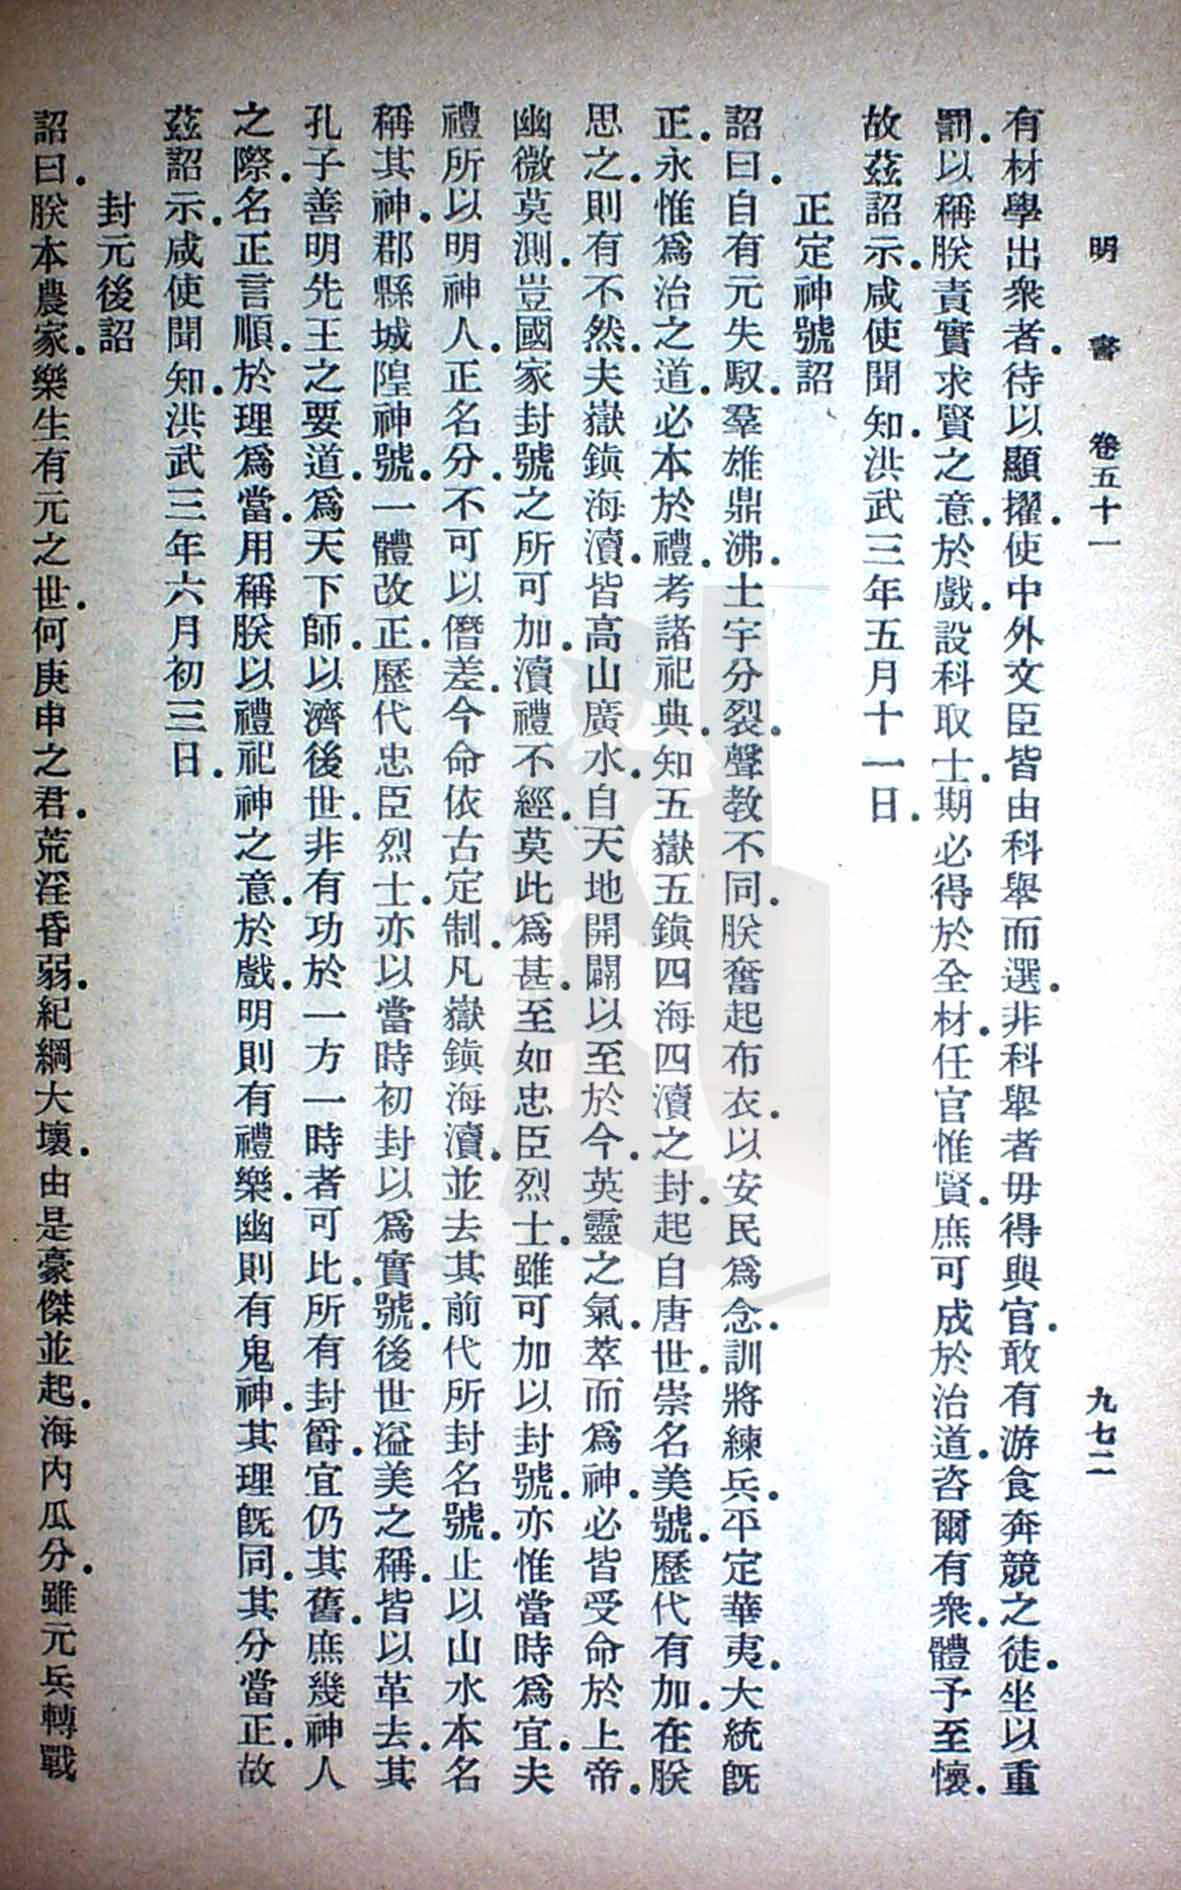 明書 卷五十一 九七二
有材學出衆者.待以顯擢.使中外文臣皆由科舉而選.非科舉者毋得與官.敢有游食奔競之徒.坐以重
罰.以稱朕責實求賢之意.於戲.設科取士.期必得於全材.任官惟賢.庶可成於治道.咨爾有衆.體予至懷.
故茲詔示.咸使聞知.洪武三年五月十一日.
正定神號詔
詔曰.自有元失馭.羣雄鼎沸.土宇分裂.聲教不同.朕奮起布衣.以安民爲念.訓將練兵.平定華夷.大統旣
正.永惟爲治之道.必本於禮.考諸祀典.知五嶽五鎭四海四瀆之封.起自唐世.崇名美號.歷代有加.在朕
思之.則有不然.夫嶽鎭海瀆.皆高山廣水.自天地開闢.以至於今.英靈之氣.萃而爲神.必皆受命於上帝.
幽微莫測.豈國家封號之所可加.瀆禮不經.莫此爲甚.至如忠臣烈士.雖可加以封號.亦惟當時爲宜.夫
禮所以明神人.正名分.不可以僭差.今命依古定制.凡嶽鎭海瀆.並去其前代所封名號.止以山水本名
稱其神.郡縣城隍神號.一體改正.歷代忠臣烈士.亦以當時初封以爲實號.後世溢美之稱.皆以革去.其
孔子善明先王之要道.爲天下師.以濟後世.非有功於一方一時者可比.所有封爵.宜仍其舊.庶幾神人
之際.名正言順.於理爲當.用稱朕以禮祀神之意.於戲.明則有禮樂.幽則有鬼神.其理旣同.其分當正.故
茲詔示.咸使聞知.洪武三年六月初三日.
封元後詔
詔曰.朕本農家.樂生有元之世.何庚申之君.荒淫昏弱.紀綱大壞.由是豪傑並起.海內瓜分.雖元兵轉戰